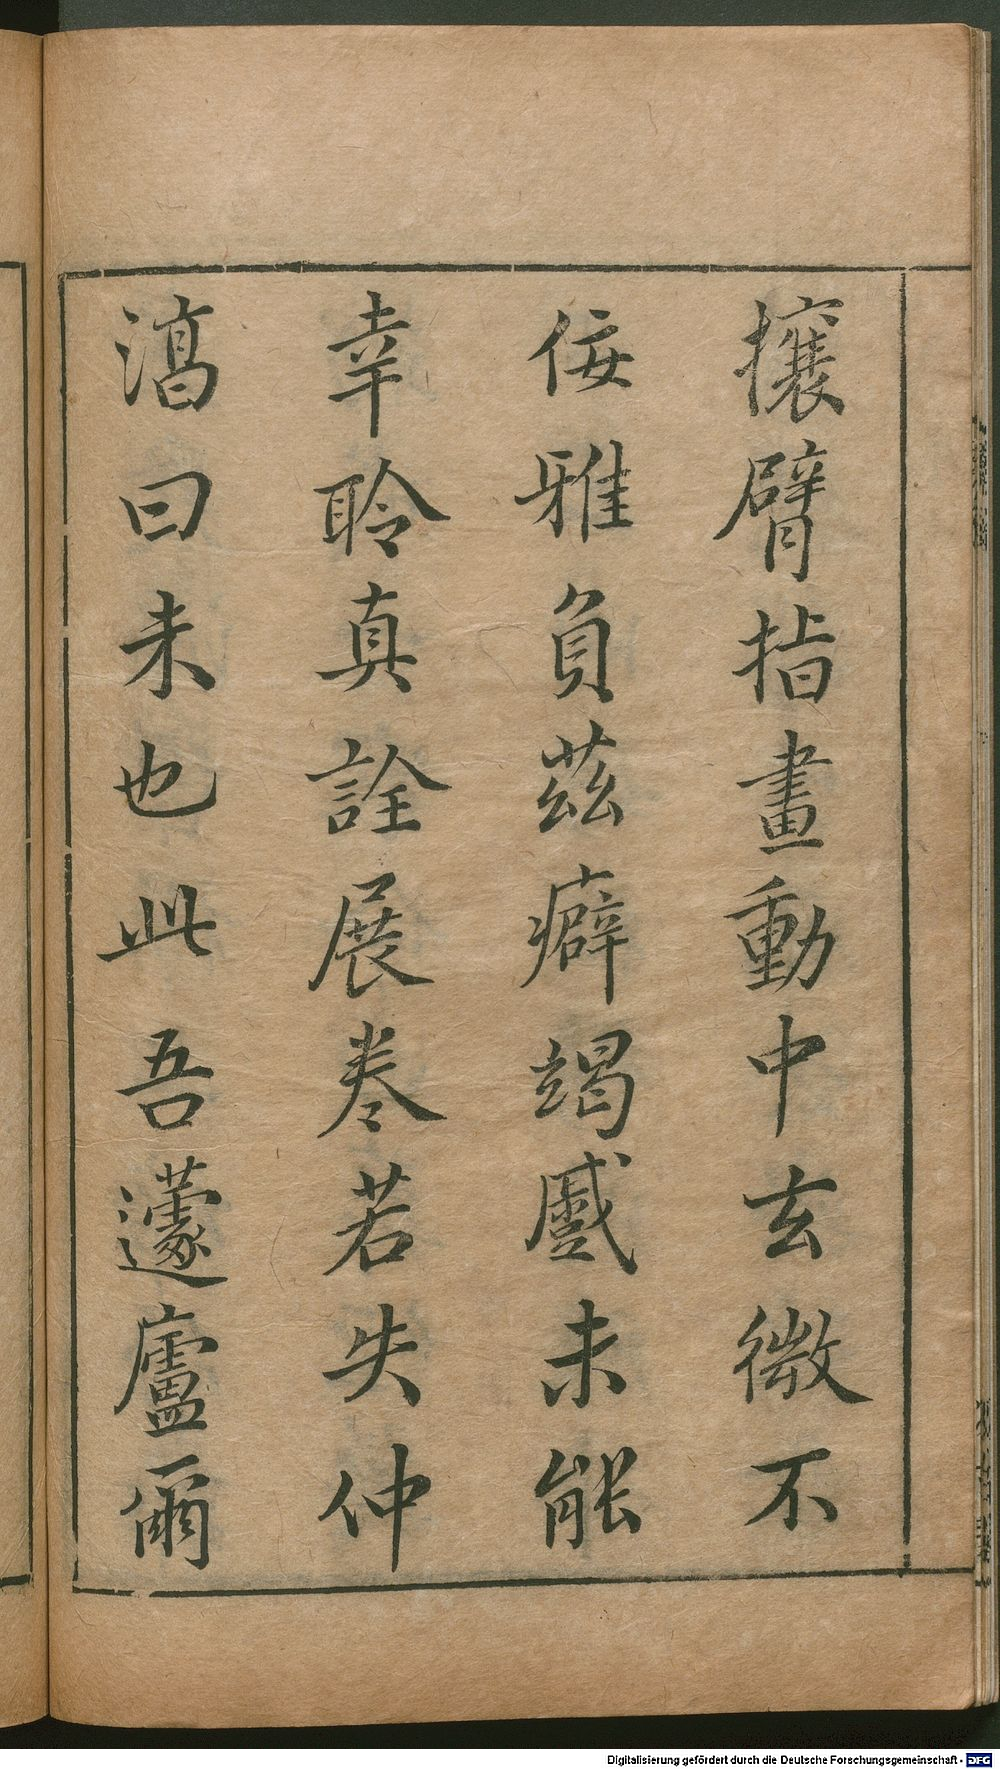 攘臂指畫動中玄微不
佞雅負茲癖竭蹷未能
幸聆真詮展卷若失仲
濄曰未也此吾蘧廬爾
Digitalisierung gefördert durch die Deutsche Forschungsgemeinschaft - DFG